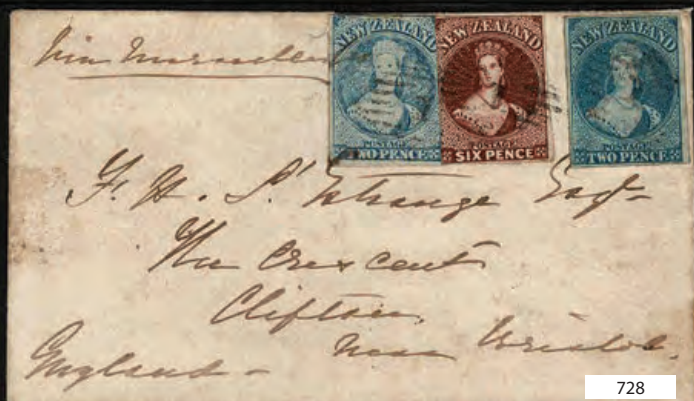 Via Marseilles
NEW ZEALAND
POSTAGE
TWO PENCE
NEW ZEALAND
POSTAGE
SIX PENCE
NEW ZEALAND
POSTAGE
TWO PENCE
F. H. L'Estrange Esqr
The Crescent
Clifton
Near Bristol.
England -
728